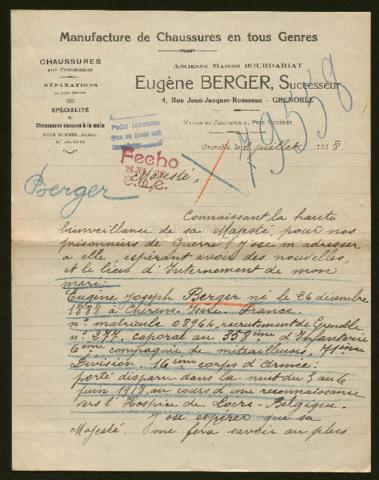 Manufacture de Chaussures en tous Genres
CHAUSSURES
sur Commande
RÉPARATIONS
SPÉCIALITÉ
Chaussures cousues à la main
POUR HOMMES, DAMES
ANCIENNE MAISON BOURDARIAT
Eugène BERGER, Successeur
4, Rue Jean-Jacques-Rousseau - GRENOBLE
MAISON DE CONFIANCE
79558
Grenoble, le juillet 1918.
Fecho
Berger
Majesté,
Connaissant la haute
bienveillance de sa Majesté, pour nos
prisonniers de Guerre, J'ose m'adresser
à elle, espérant avoir des nouvelles,
et le lieu d'Internement de mon
mari
Eugène Joseph Berger né le 26 décembre
1888 à Chirens Isère France.
n° matricule 0896, recrutement de Grenoble
n° 277, caporal au 358ème d'Infanterie
6ème compagnie de mitrailleuses, 71ème
Division, 16ème corps d'Armée:
porté disparu dans la nuit du 5 au 6
juin 1918 au cours d'une reconnaissance
vers l'Hospice de Locre - Belgique.
J'ose espérer que sa
Majesté me fera savoir au plus